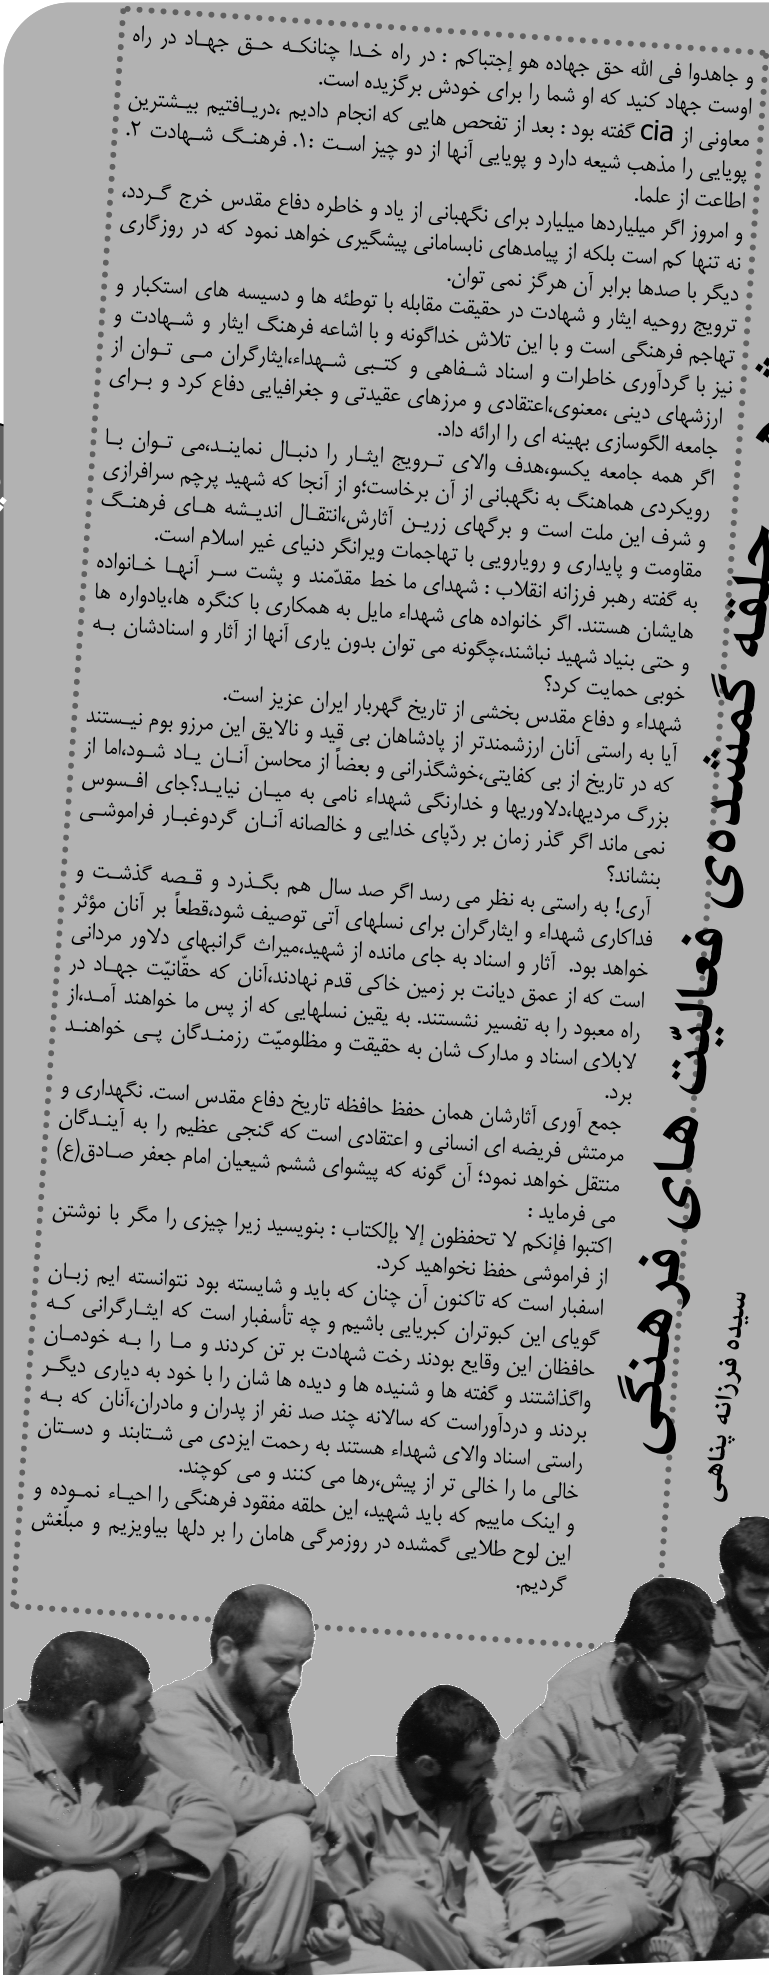 حلقه گمشده‌ی فعالیّت های فرهنگی
سیده فرزانه پناهی
و جاهدوا فی الله حق جهاده هو إجتباکم : در راه خدا چنانکه حق جهاد در راه
اوست جهاد کنید که او شما را برای خودش برگزیده است.
معاونی از cia گفته بود : بعد از تفحص هایی که انجام دادیم ،دریافتیم بیشترین
پویایی را مذهب شیعه دارد و پویایی آنها از دو چیز است :۱. فرهنگ شهادت ۲.
اطاعت از علما.
و امروز اگر میلیاردها میلیارد برای نگهبانی از یاد و خاطره دفاع مقدس خرج گردد،
نه تنها کم است بلکه از پیامدهای نابسامانی پیشگیری خواهد نمود که در روزگاری
دیگر با صدها برابر آن هرگز نمی توان.
ترویج روحیه ایثار و شهادت در حقیقت مقابله با توطئه ها و دسیسه های استکبار و
تهاجم فرهنگی است و با این تلاش خداگونه و با اشاعه فرهنگ ایثار و شهادت و
نیز با گردآوری خاطرات و اسناد شفاهی و کتبی شهداء،ایثارگران می توان از
ارزشهای دینی ،معنوی،اعتقادی و مرزهای عقیدتی و جغرافیایی دفاع کرد و برای
جامعه الگوسازی بهینه ای را ارائه داد.
اگر همه جامعه یکسو،هدف والای ترویج ایثار را دنبال نمایند،می توان با
رویکردی هماهنگ به نگهبانی از آن برخاست؛و از آنجا که شهید پرچم سرافرازی
و شرف این ملت است و برگهای زرین آثارش،انتقال اندیشه های فرهنگ
مقاومت و پایداری و رویارویی با تهاجمات ویرانگر دنیای غیر اسلام است.
به گفته رهبر فرزانه انقلاب : شهدای ما خط مقدّمند و پشت سر آنها خانواده
هایشان هستند. اگر خانواده های شهداء مایل به همکاری با کنگره ها،یادواره ها
و حتی بنیاد شهید نباشند،چگونه می توان بدون یاری آنها از آثار و اسنادشان به
خوبی حمایت کرد؟
شهداء و دفاع مقدس بخشی از تاریخ گهربار ایران عزیز است.
آیا به راستی آنان ارزشمندتر از پادشاهان بی قید و نالایق این مرزو بوم نیستند
که در تاریخ از بی کفایتی،خوشگذرانی و بعضاً از محاسن آنان یاد شود،اما از
بزرگ مردیها،دلاوریها و خدارنگی شهداء نامی به میان نیاید؟جای افسوس
نمی ماند اگر گذر زمان بر ردّپای خدایی و خالصانه آنان گردوغبار فراموشی
بنشاند؟
آری! به راستی به نظر می رسد اگر صد سال هم بگذرد و قصه گذشت و
فداکاری شهداء و ایثارگران برای نسلهای آتی توصیف شود،قطعاً بر آنان مؤثر
خواهد بود. آثار و اسناد به جای مانده از شهید،میراث گرانبهای دلاور مردانی
است که از عمق دیانت بر زمین خاکی قدم نهادند،آنان که حقّانیّت جهاد در
راه معبود را به تفسیر نشستند. به یقین نسلهایی که از پس ما خواهند آمد،از
لابلای اسناد و مدارک شان به حقیقت و مظلومیّت رزمندگان پی خواهند
برد.
جمع آوری آثارشان همان حفظ حافظه تاریخ دفاع مقدس است. نگهداری و
مرمتش فریضه ای انسانی و اعتقادی است که گنجی عظیم را به آیندگان
منتقل خواهد نمود؛ آن گونه که پیشوای ششم شیعیان امام جعفر صادق(ع)
می فرماید :
اکتبوا فإنکم لا تحفظون إلا بإلکتاب : بنویسید زیرا چیزی را مگر با نوشتن
از فراموشی حفظ نخواهید کرد.
اسفبار است که تاکنون آن چنان که باید و شایسته بود نتوانسته ایم زبان
گویای این کبوتران کبریایی باشیم و چه تأسفبار است که ایثارگرانی که
حافظان این وقایع بودند رخت شهادت بر تن کردند و ما را به خودمان
واگذاشتند و گفته ها و شنیده ها و دیده ها شان را با خود به دیاری دیگر
بردند و دردآوراست که سالانه چند صد نفر از پدران و مادران،آنان که به
راستی اسناد والای شهداء هستند به رحمت ایزدی می شتابند و دستان
خالی ما را خالی تر از پیش،رها می کنند و می کوچند.
و اینک ماییم که باید شهید، این حلقه مفقود فرهنگی را احیاء نموده و
این لوح طلایی گمشده در روزمرگی هامان را بر دلها بیاویزیم و مبلّغش
گردیم.